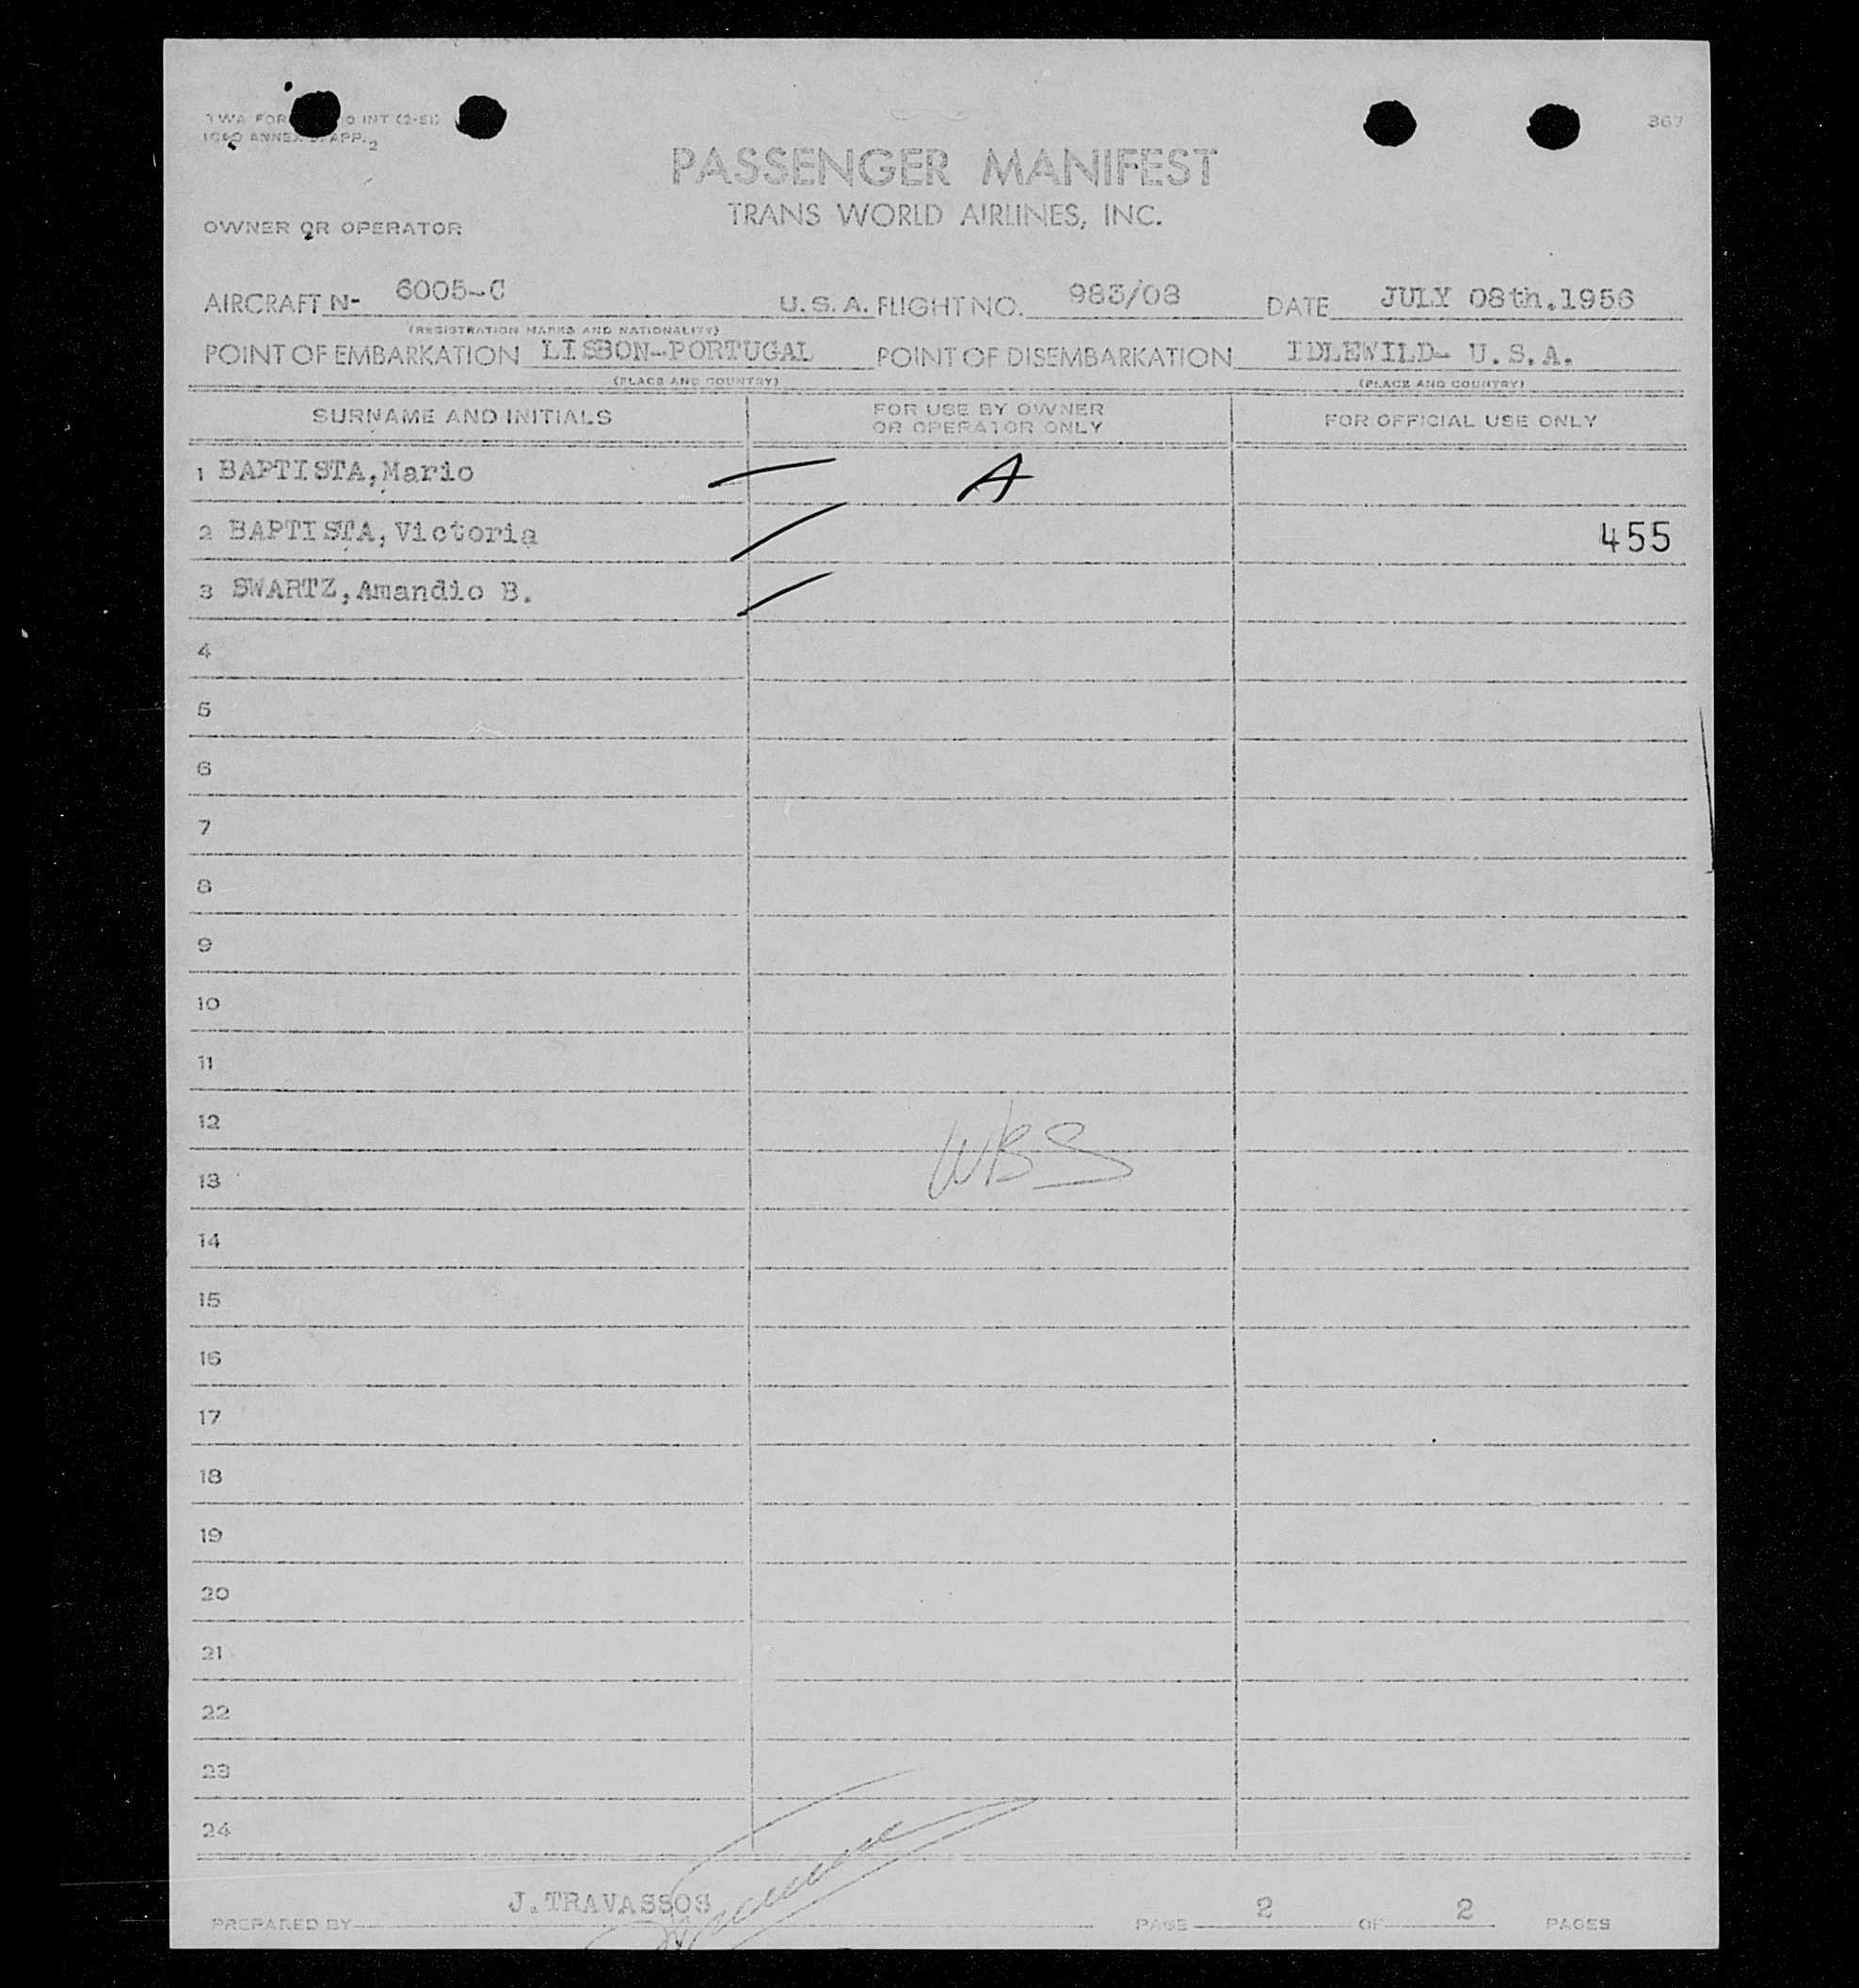 TWA FOR 10 INT (2-51)
ICAO ANNEX 9. APP. 2
367
PASSENGER MANIFEST
TRANS WORLD AIRLINES, INC.
OWNER OR OPERATOR
AIRCRAFT N- 6005-C U.S.A. FLIGHT NO. 983/08 DATE JULY 08th.1956
(REGISTRATION MARKS AND NATIONALITY)
POINT OF EMBARKATION LISBON-PORTUGAL POINT OF DISEMBARKATION IDLEWILD- U.S.A.
(PLACE AND COUNTRY) (PLACE AND COUNTRY)
SURNAME AND INITIALS FOR USE BY OWNER OR OPERATOR ONLY FOR OFFICIAL USE ONLY
1 BAPTISTA,Mario A
2 BAPTISTA,Victoria 455
3 SWARTZ,Amandio B.
4
5
6
7
8
9
10
11
12
WBS
13
14
15
16
17
18
19
20
21
22
23
24
PREPARED BY J.TRAVASSOS PAGE 2 OF 2 PAGES